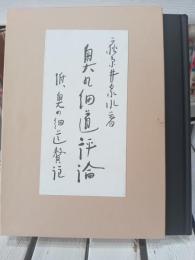 荻原井泉水著
奥の細道評論
附、奥の細道註